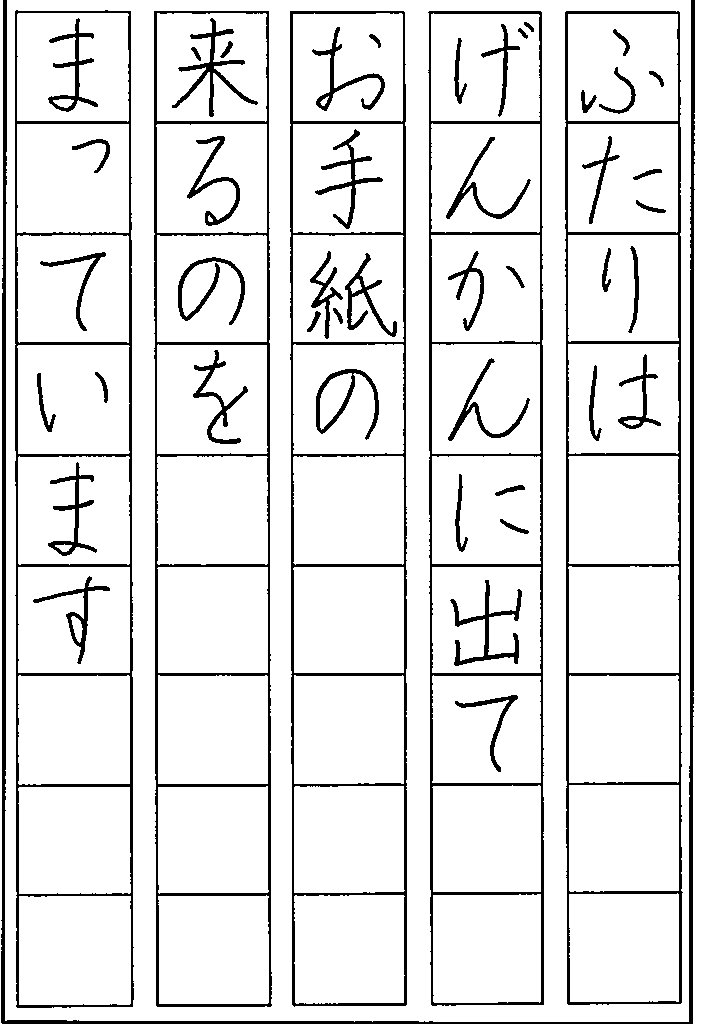 ふたりは
げんかんに出て
お手紙の
来るのを
まっています